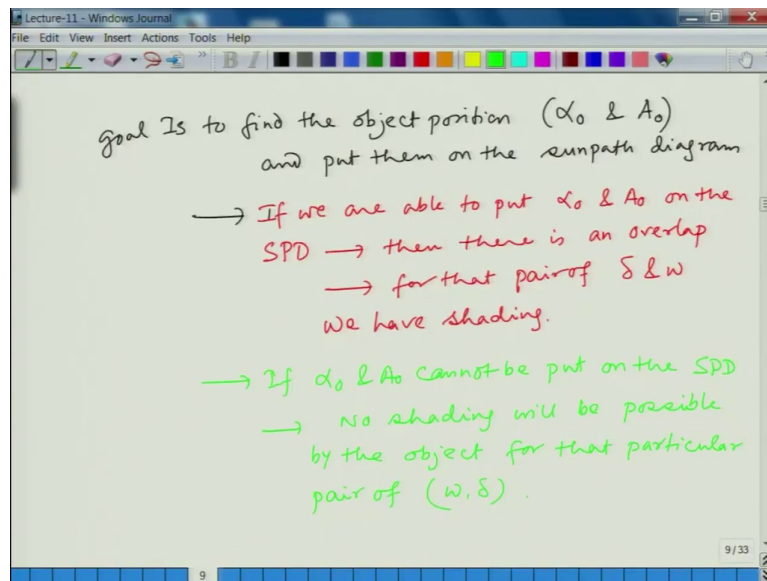 Lecture-11 - Windows Journal
File Edit View Insert Actions Tools Help
B I
goal Is to find the object position (α₀ & A₀)
and put them on the sunpath diagram
→ If we are able to put α₀ & A₀ on the
SPD → then there is an overlap
→ for that pair of δ & ω
we have shading.
→ If α₀ & A₀ cannot be put on the SPD
→ No shading will be possible
by the object for that particular
pair of (ω, δ).
9/33
9